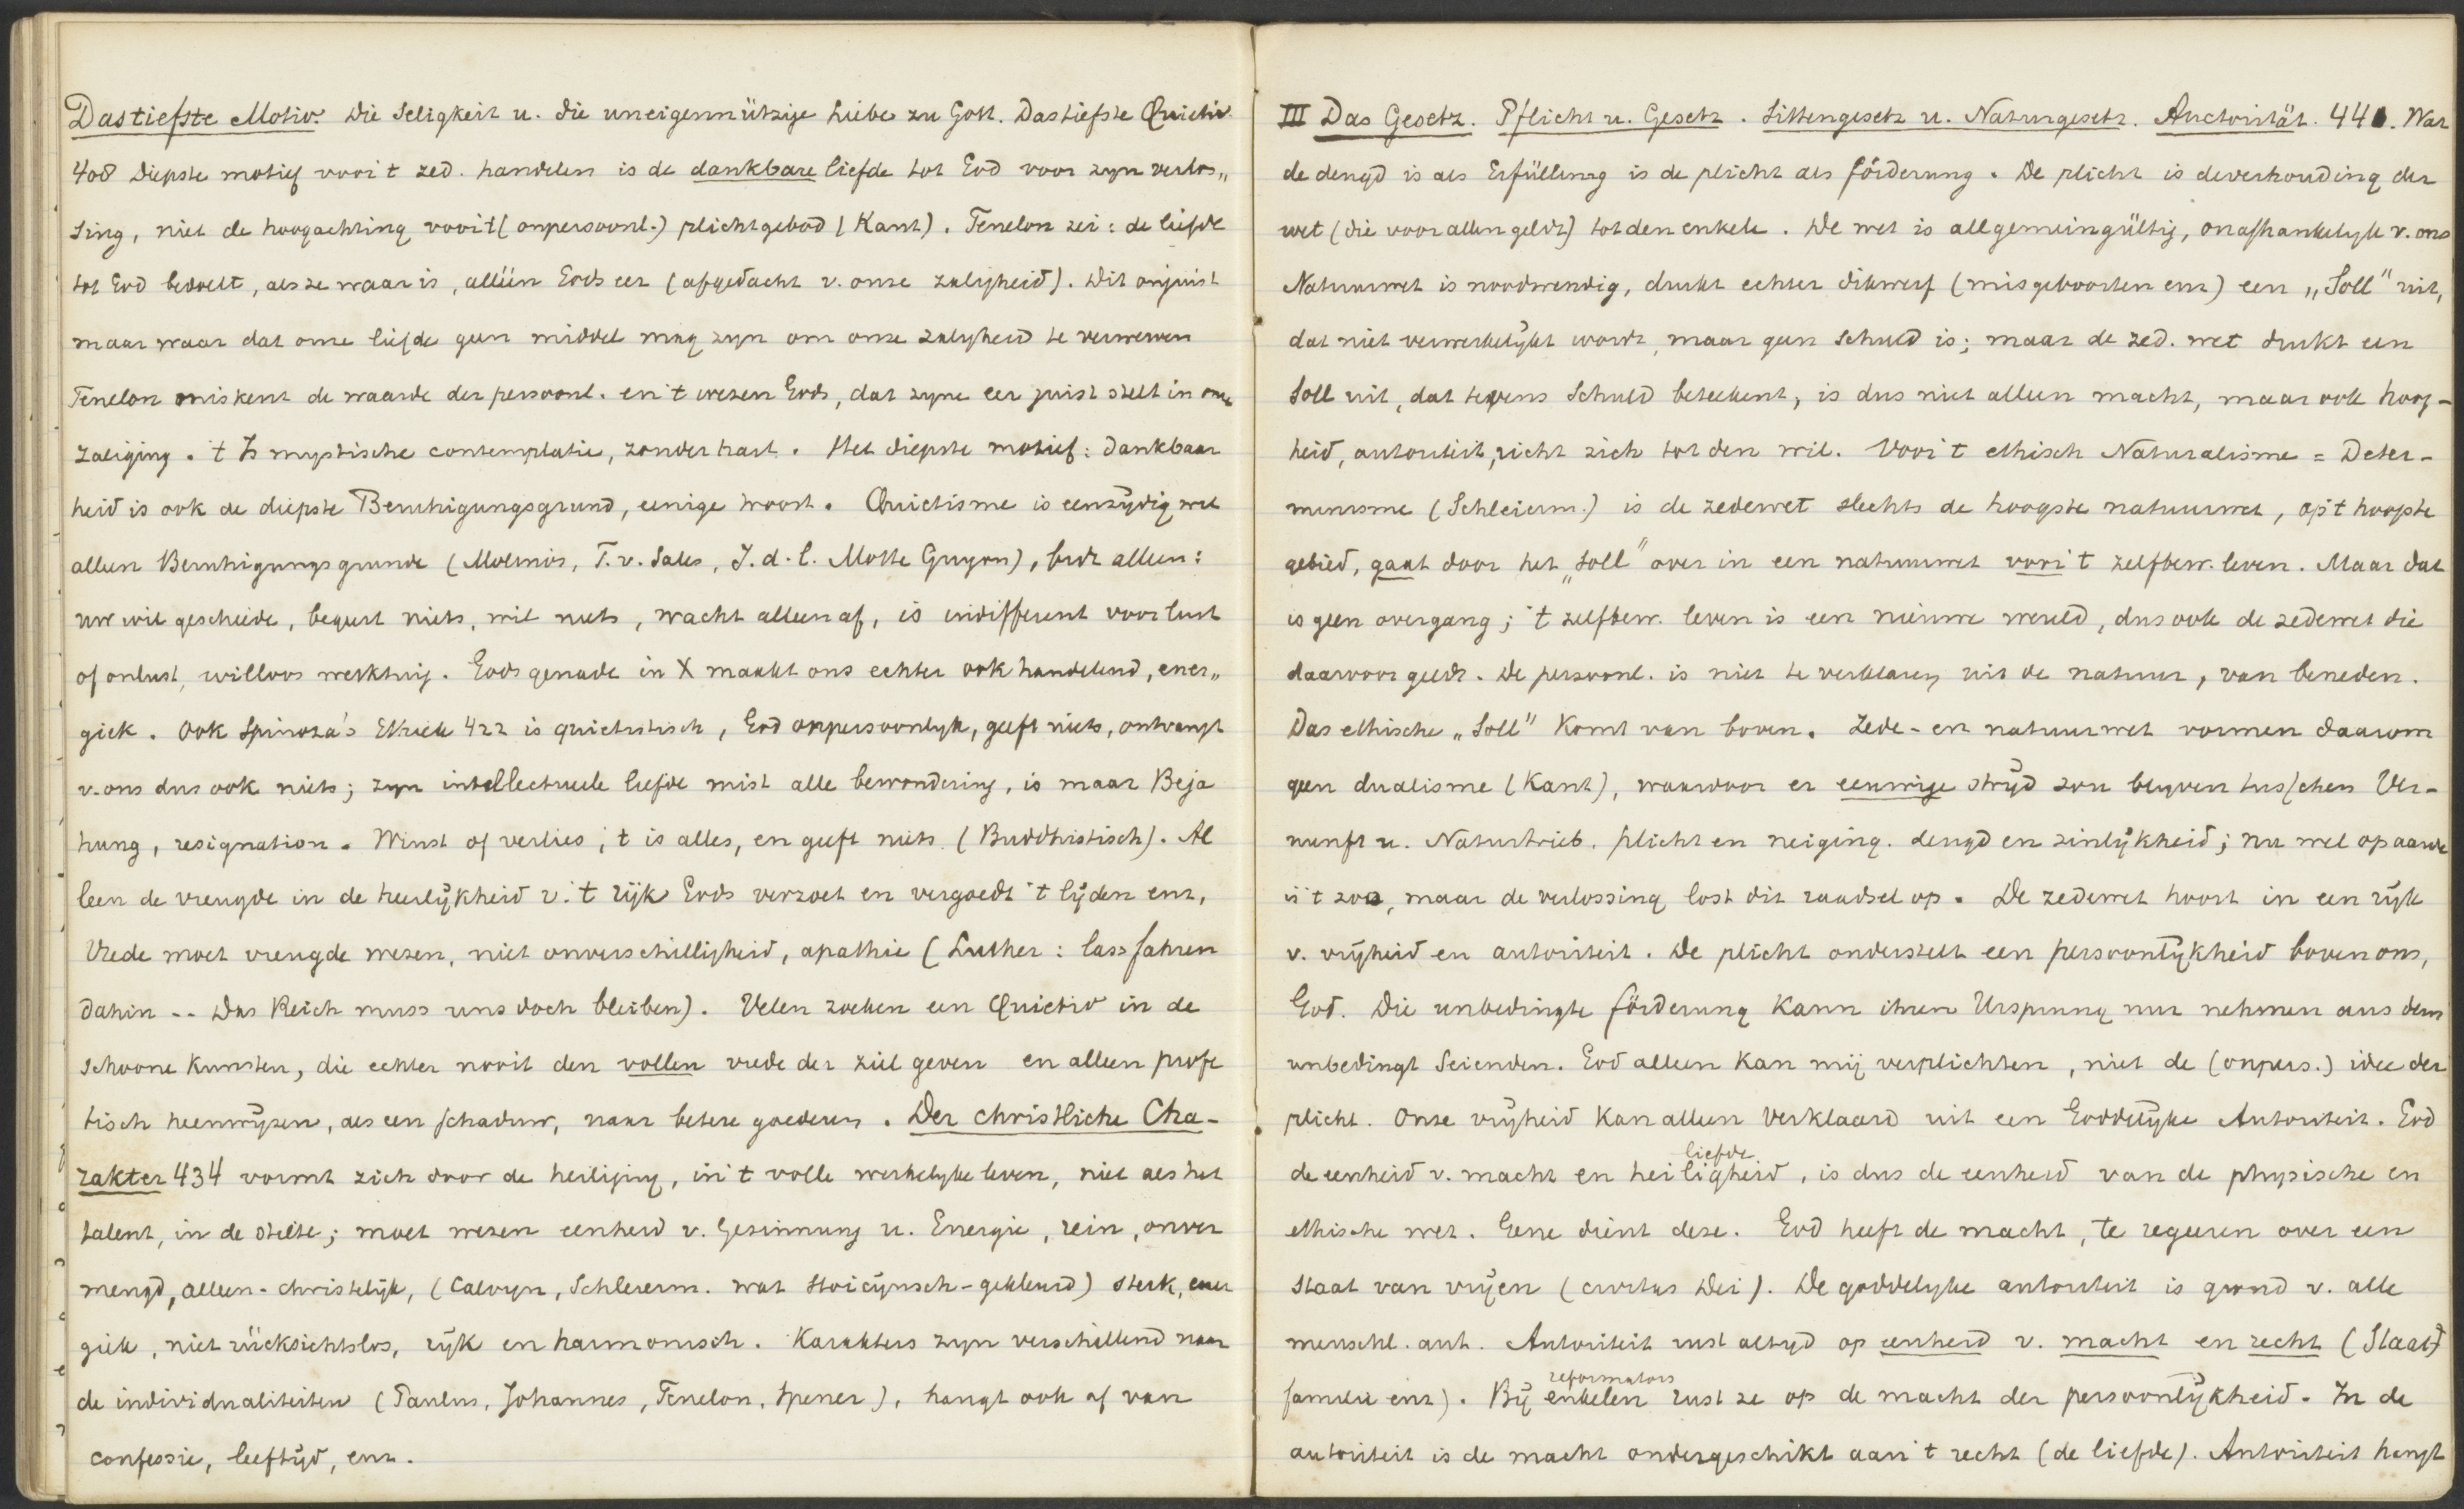 Das tiefste Motiv. Die Seligkeit u. die uneigennützige Liebe zu Gott. Das tiefste Quietiv.
408 Diepste motief voor 't zed. handelen is de dankbare liefde tot God voor zyn verlos„
sing, niet de hoogachting voor 't (onpersoonl.) plichtgebod (Kant). Fenelon zei: de liefde
tot God bedoelt, als ze waar is, alléén Gods eer (afgedacht v. onze zaligheid). Dit onjuist
maar waar dat onze liefde geen middel mag zyn om onze zaligheid te verwerven
Fenelon miskent de waarde der persoonl. en 't wezen Gods, dat zyne eer juist stelt in onze
zaliging. 't Is mystische contemplatie, zonder hart. Het diepste motief: dankbaar
heid is ook de diepste Beruhigungsgrund, eenige troost. Quietisme is eenzydig wil
alleen Beruhigungsgrunde (Molinos, F. v. Sales, J. d. l. Motte Guyon), bidt alleen:
uw wil geschiede, begeert niets, wil niets, wacht alleen af, is indifferent voor lust
of onlust, willoos werktuig. Gods genade in X maakt ons echter ook handelend, ener„
giek. Ook Spinoza's Ethiek 422 is quietistisch, God onpersoonlyk, geeft niets, ontvangt
v. ons dus ook niets; zyn intellectueele liefde mist alle bewondering, is maar Beja
hung, resignation. Winst of verlies, 't is alles, en geeft niets (Buddhistisch). Al
leen de vreugde in de heerlykheid v. 't ryk Gods verzoet en vergoedt 't lyden enz,
Vrede moet vreugde wezen, niet onverschilligheid, apathie (Luther: lass fahren
dahin -- Das Reich muss uns doch bleiben). Velen zoeken een Quietiv in de
schoone kunsten, die echter nooit den vollen vrede der ziel geven en alleen profe
tisch heenwyzen, als een schaduw, naar betere goederen. Der christliche Cha-
rakter 434 vormt zich door de heiliging, in 't volle werkelyke leven, niet als het
talent, in de stilte; moet wezen eenheid v. Gesinnung u. Energie, rein, onver
mengd, alleen-christelyk, (Calvyn, Schleierm. wat stoicynsch-gekleurd) sterk, ener
giek, niet rücksichtslos, ryk en harmonisch. Karakters zyn verschillend naar
de individualiteiten (Paulus, Johannes, Fenelon, Spener), hangt ook af van
confessie, leeftyd, enz.
III Das Gesetz. Pflicht u. Gesetz. Sittengesetz u. Naturgesetz. Auctorität. 440. Wat
de deugd is als Erfüllung is de plicht als förderung. De plicht is de verhouding der
wet (die voor allen geldt) tot den enkele. De wet is allgemeingültig, onafhankelyk v. ons
Natuurwet is noodwendig, drukt echter dikwerf (misgeboorten enz) een „Soll" uit,
dat niet verwerkelykt wordt, maar geen schuld is; maar de zed. wet drukt een
Soll uit, dat tevens Schuld beteekent, is dus niet alleen macht, maar ook hoog-
heid, autoriteit, richt zich tot den wil. Voor 't ethisch Naturalisme = Deter-
minisme (Schleierm.) is de zedewet slechts de hoogste natuurwet, op 't hoogste
gebied, gaat door het „Soll" over in een natuurwet voor 't zelfbew. leven. Maar dat
is geen overgang; 't zelfbew. leven is een nieuwe wereld, dus ook de zedewet die
daarvoor geldt. De persoonl. is niet te verklaren uit de natuur, van beneden.
Das ethische „Soll" komt van boven. Zede- en natuurwet vormen daarom
geen dualisme (Kant), waardoor er eeuwige stryd zou blyven tusschen Ver-
nunft u. Naturtrieb, plicht en neiging, deugd en zinlykheid; nu wel op aarde
is 't zoo, maar de verlossing lost dit raadsel op. De zedewet hoort in een ryk
v. vryheid en autoriteit. De plicht onderstelt een persoonlykheid boven ons,
God. Die unbedingte förderung kann ihren Ursprung nur nehmen aus dem
unbedingt Seienden. God alleen kan mij verplichten, niet de (onpers.) idee der
plicht. Onze vryheid kan alleen verklaard uit een Goddelyke Autoriteit. God
liefde
de eenheid v. macht en heiligheid, is dus de eenheid van de physische en
ethische wet. Gene dient deze. God heeft de macht, te regeeren over een
staat van vryen (civitas Dei). De goddelyke autoriteit is grond v. alle
menschl. aut. Autoriteit rust altyd op eenheid v. macht en recht (Staat,
reformators
familie enz). By enkelen rust ze op de macht der persoonlykheid. In de
autoriteit is de macht ondergeschikt aan 't recht (de liefde). Autoriteit hangt